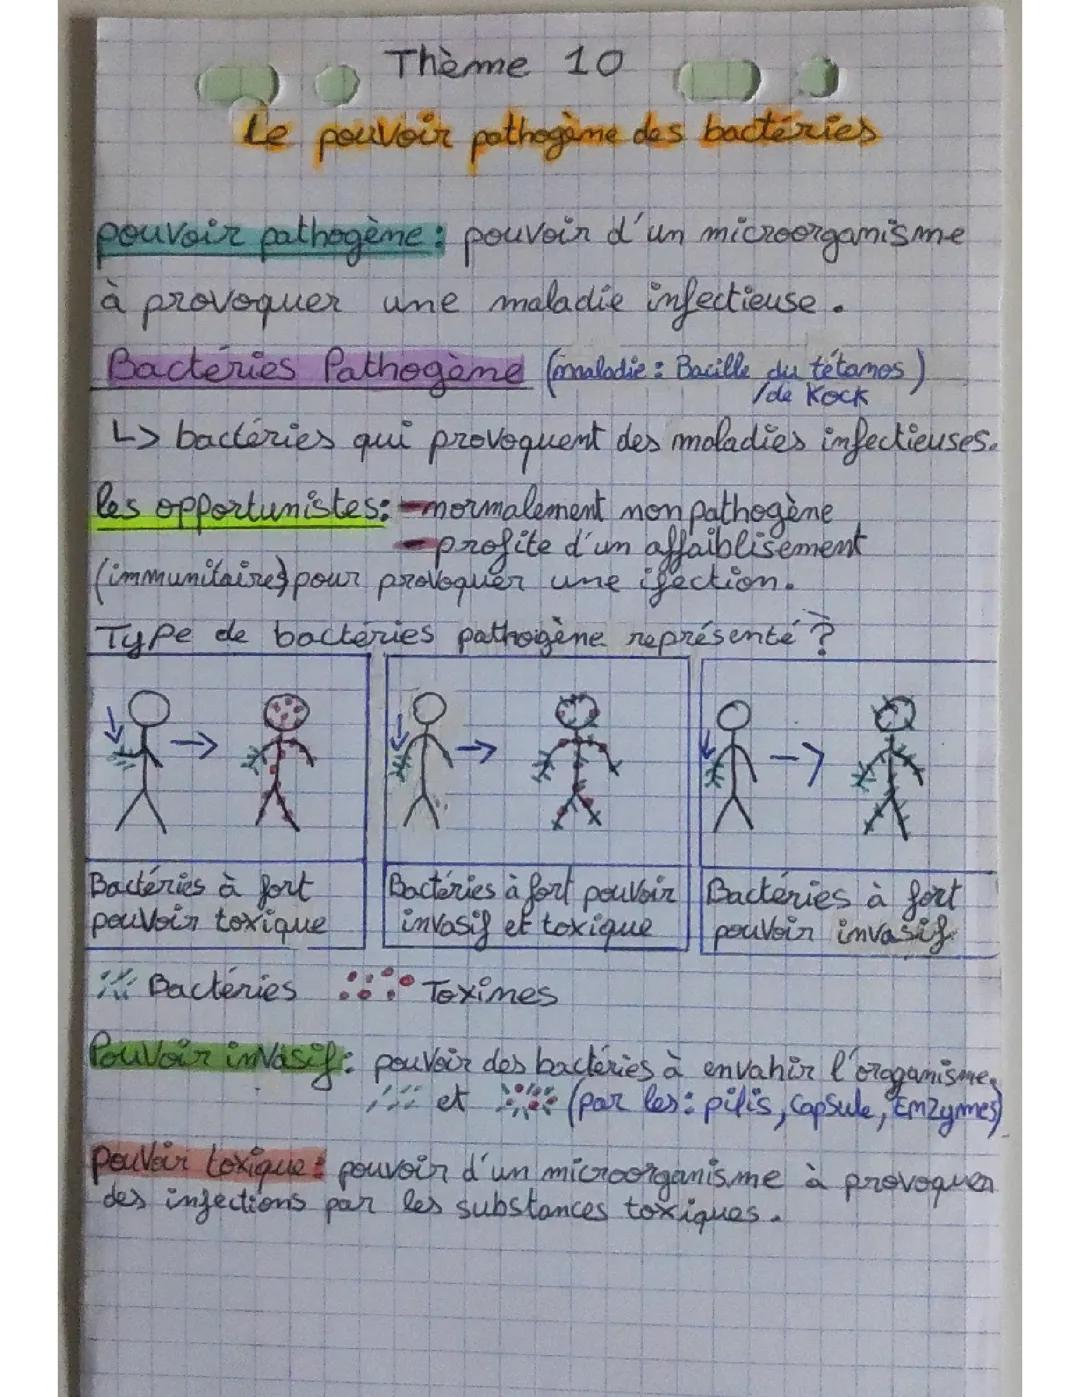 Thème 10
Le pouvoir pathogène des bactéries
pouvoir pathogène : pouvoir d'un microorganisme
à provoquer une maladie infectieuse.
Bactéries Pathogène (maladie : Bacille du tétanos)
/de Kock
↳ bactéries qui provoquent des maladies infectieuses.
les opportunistes : - normalement non pathogène
- profite d'un affaiblisement
(immunitaire) pour provoquer une ifection.
Type de bactéries pathogène représenté ?
Bactéries à fort
pouvoir toxique
Bactéries à fort pouvoir
invasif et toxique
Bactéries à fort
pouvoir invasif.
Bactéries Toxines
Pouvoir invasif : pouvoir des bactéries à envahir l'oraganisme,
et (par les : pilis, capsule, Enzymes)
pouvoir toxique : pouvoir d'un microorganisme à provoquer
des infections par les substances toxiques.